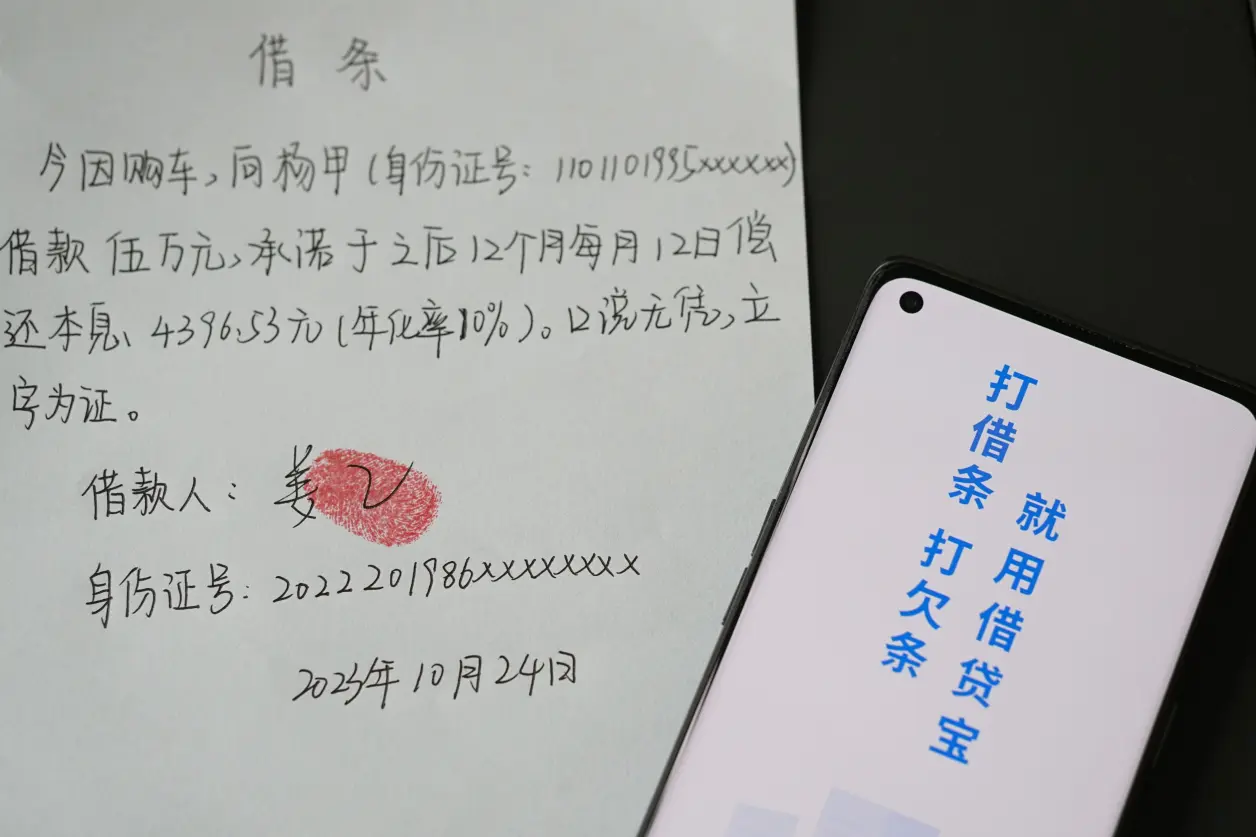 借条
今因购车,向杨甲(身份证号:1101101995xxxxxx)
借款伍万元,承诺于之后12个月每月12日偿
还本息、4396.53元(年化率10%)。口说无凭,立
字为证。
借款人:姜乙
身份证号:2022201986xxxxxxxx
2023年10月24日
打借条 打欠条
就用借贷宝